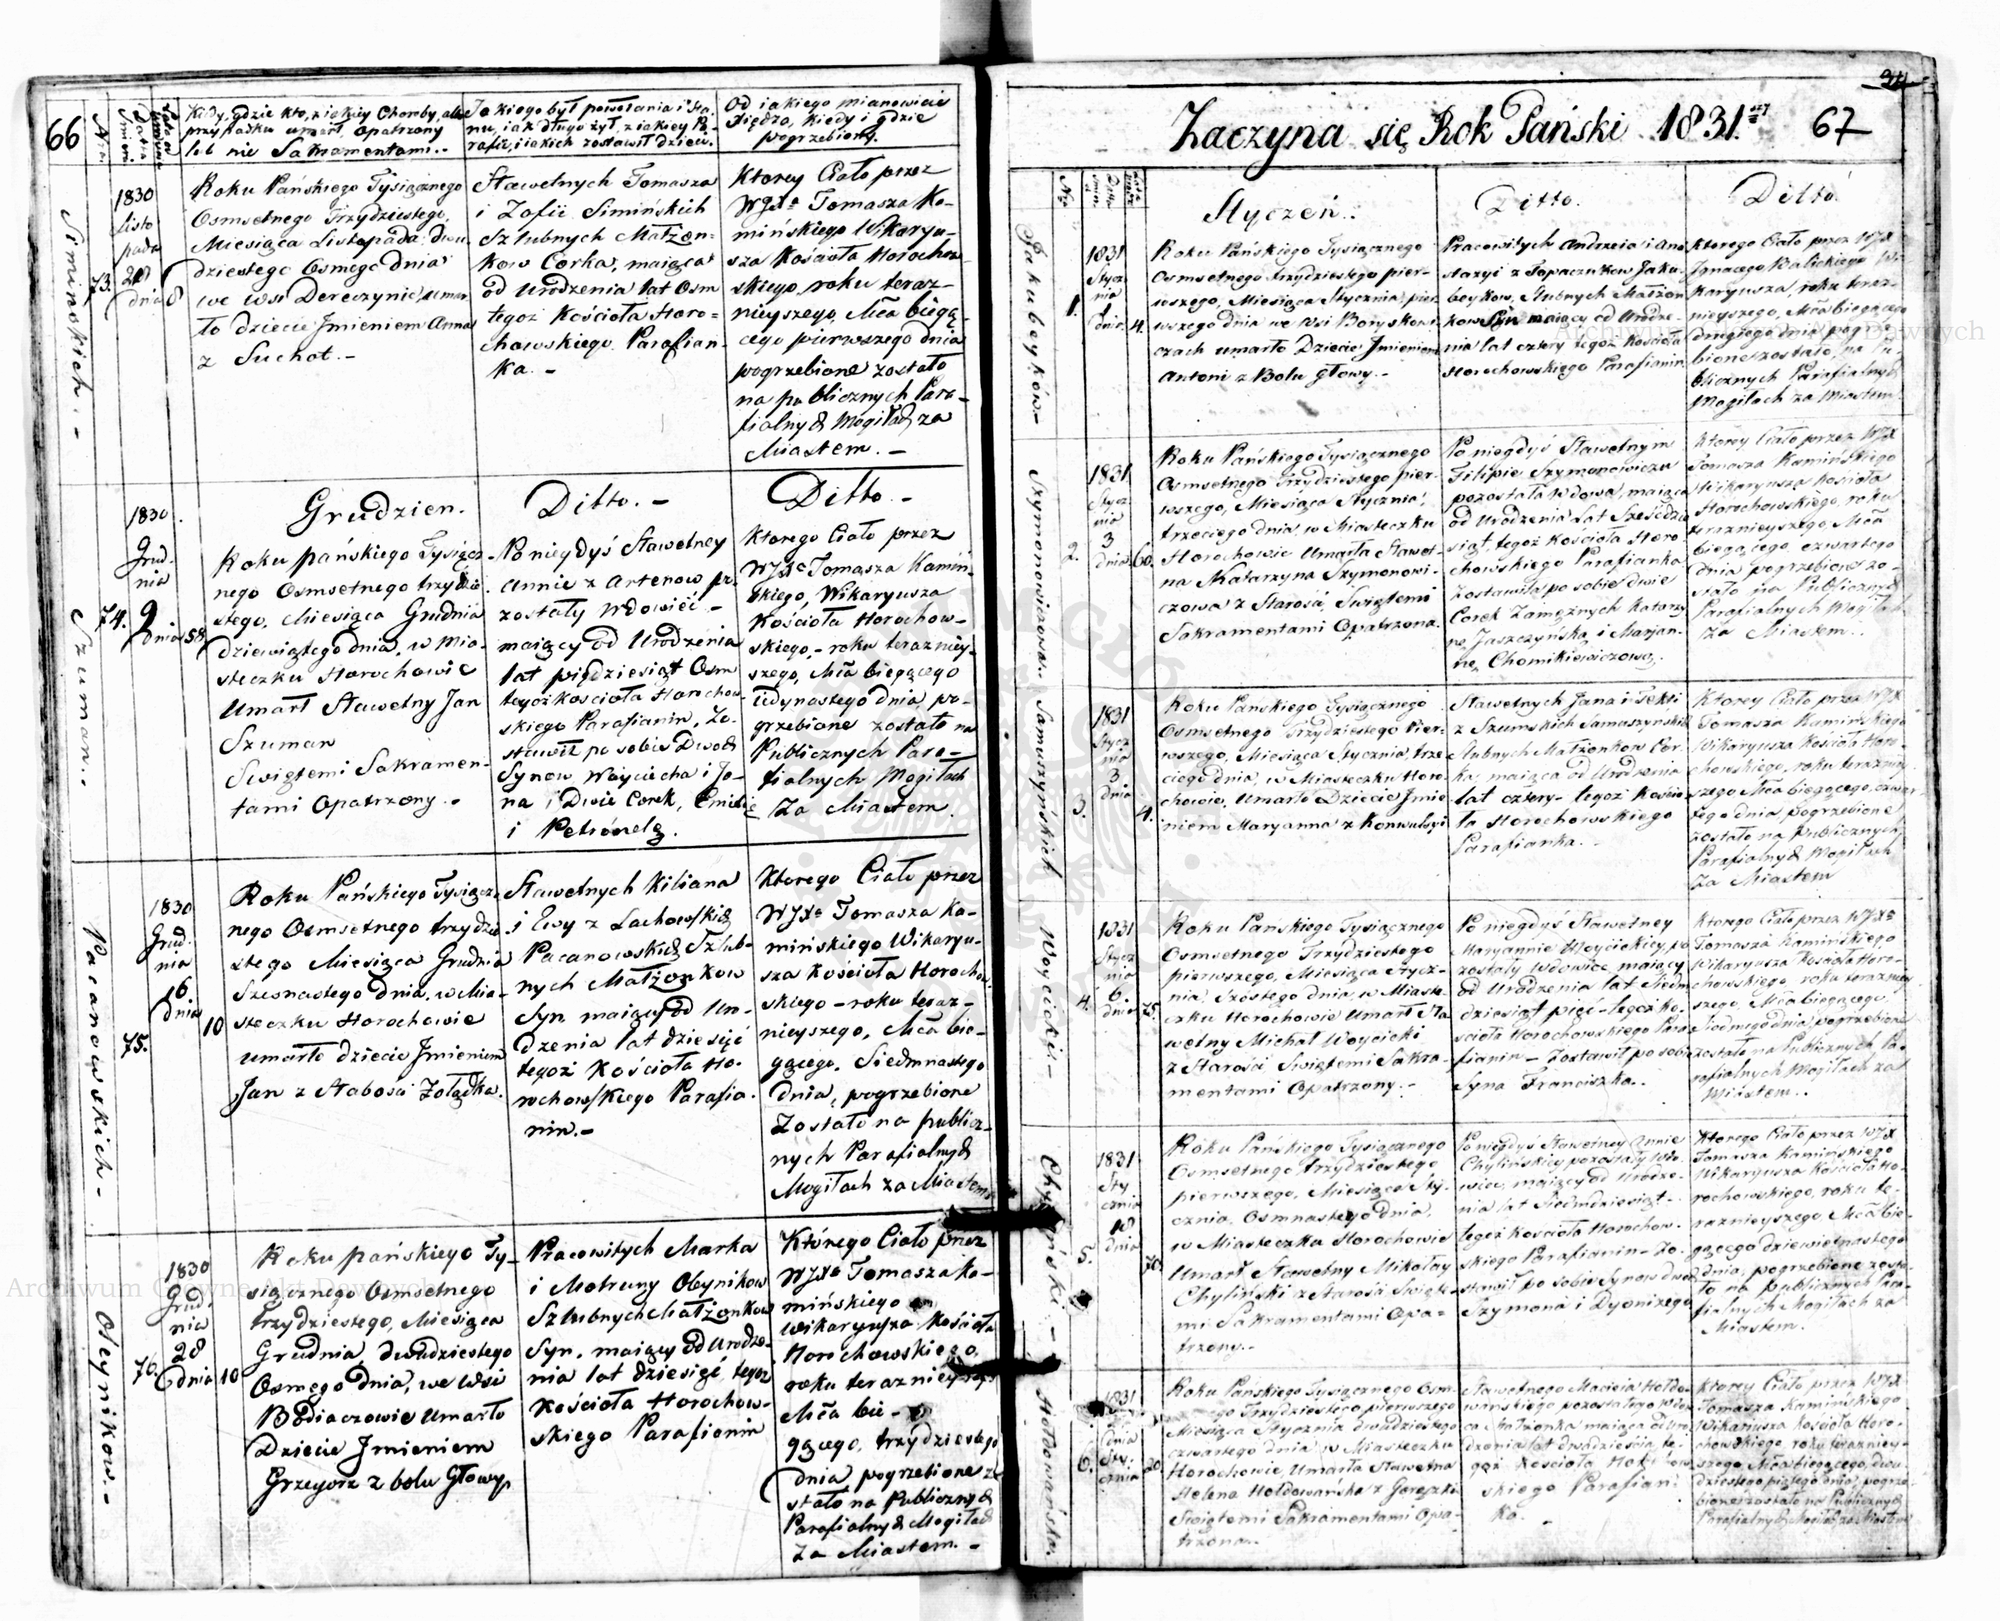 66
Kiedy, gdzie kto, z iakiey Choroby, albo
przypadku umarł, opatrzony
lub nie Sakramentami. -
Jakiego był powołania i sta-
nu, iak długo żył, z iakiey Pa-
rafii, i iakich zostawił dzieci.
Od iakiego mianowicie
Xiędza, kiedy i gdzie
pogrzebiony.
Siminskich. -
73.
1830
Listo
pada
28
dnia
8
Roku Pańskiego Tysiącznego
Osmsetnego Trzydziestego,
Miesiąca Listopada, dwu
dziestego Osmego dnia
we wsi Dereczynie, umar
ło dziecie Jmieniem Anna
z Suchot. -
Sławetnych Tomasza
i Zofii Simińskich
Szlubnych Małżon-
kow Corka, maiąca
od Urodzenia lat Osm
tegoż Kościoła Horo-
chowskiego Parafian-
ka. -
Ktorey Ciało przez
WJXa Tomasza Ka-
mińskiego Wikaryu-
sza Kościoła Horochow-
skiego, roku teraz-
nieyszego, Mca biegą-
cego pierwszego dnia
pogrzebione zostało
na publicznych Para-
fialnych Mogiłach za
Miastem. -
Grudzien.
Ditto. -
Ditto. -
Szuman. -
74.
1830
Grud-
nia
9
dnia
58
Roku pańskiego Tysiącz-
nego Osmsetnego trzydzie-
stego, Miesiąca Grudnia
dziewiątego dnia, w Mia-
steczku Horochowie
Umarł Sławetny Jan
Szuman
Swiętemi Sakramen-
tami Opatrzony. -
Po niegdyś Sławetney
Annie z Artenow po-
zostały Wdowieć -
maiący od Urodzenia
lat pięćdziesiąt Osm
tegoż Kościoła Horochow-
skiego Parafianin, Zo-
stawił po sobie Dwoch
Synow, Woyciecha i Ja-
na i Dwie Corek, Emilię
i Petronelę.
Ktorego Ciało przez
WJXa Tomasza Kamiń-
skiego, Wikaryusza
Kościoła Horochow-
skiego, - roku teraz niey-
szego, Mca biegącego
iedynastego dnia, po-
grzebione zostało na
Publicznych Para-
fialnych Mogiłach
Za Miastem.
Pacanowskich -
75.
1830
Grud-
nia
16.
dnia
10
Roku Pańskiego Tysiącz-
nego Osmsetnego trzydzie-
stego Miesiąca Grudnia
Szesnastego dnia, w Mia-
steczku Horochowie
umarło dziecie Jmieniem
Jan z słabości Zołądka.
Sławetnych Kiliana
i Ewy z Lachowskich
Pacanowskich Szlub-
nych Małżonkow
Syn maiący od Uro-
dzenia lat dziesięć
tegoż Kościoła Ho-
rochowskiego Parafia-
nin. -
Ktorego Ciało przez
WJXa Tomasza Ka-
mińskiego Wikaryu-
sza Kościoła Horochow-
skiego - roku teraz-
nieyszego, Mca bie-
gącego, Siedmnastego
dnia, pogrzebione
Zostało na publicz-
nych Parafialnych
Mogiłach za Miastem
Oleynikow. -
76.
1830
Grud-
nia
28
dnia
10
Roku pańskiego Ty-
siącznego Osmsetnego
trzydziestego, Miesiąca
Grudnia, dwudziestego
Osmego dnia, we Wsi
Bodiaczowie umarło
Dziecie Jmieniem
Grzegorz z bolu Głowy.
Pracowitych Marka
i Motruny Oleynikow
Szlubnych Małżonkow
Syn, maiący od Urodze-
nia lat dziesięć, tegoż
Kościoła Horochow-
skiego Parafianin
Którego Ciało przez
WJXa Tomasza Ka-
mińskiego
Wikaryusza Kościoła
Horochowskiego,
roku teraznieyszego
Mca bie-
gącego, trzydziestego
dnia pogrzebione zo-
stało na Publicznych
Parafialnych Mogiłach
Za Miastem. -
34
Zaczyna się Rok Pański 1831.
67
Styczeń.
Ditto.
Ditto
Jakubeyków -
1.
1831
Stycz
nia
1
dnia.
4.
Roku Pańskiego Tysiącznego
Osmsetnego trzydziestego pier-
wszego, Miesiąca Stycznia, pier
wszego dnia we Wsi Boryskowi-
czach umarło Dziecie Jmieniem
Antoni z Bolu głowy. -
Pracowitych Andrzeia i Ana
stazyi z Topaczukow Jaku-
beykow, Slubnych Małżon
kow Syn maiący od Urodze-
nia lat cztery tegoż Kościoła
Horochowskiego Parafianin.
Ktorego Ciało przez WJX
Jgnacego Balickiego Wi-
karyusza, roku teraz-
nieyszego, Mca biegącego
drugiego dnia pogrze-
bione zostało, na Pu-
blicznych Parafialnych
Mogiłach za Miastem
Szymonowiczowa -
2.
1831
Stycz
nia
3
dnia
60.
Roku Pańskiego Tysiącznego
Osmsetnego Trzydziestego pier-
wszego, Miesiąca Stycznia,
trzeciego dnia, w Miasteczku
Horochowie Umarła Sławet-
na Katarzyna Szymonowi-
czowa z Starości, Swiętemi
Sakramentami Opatrzona.
Po niegdyś Sławetnym
Filipie Szymonowiczu
pozostała Wdowa, maiąca
od Urodzenia Lat Sześćdzie
siąt, tegoż Kościoła Horo-
chowskiego Parafianka
Zostawiła po sobie dwie
Corek Zamężnych Katarzy-
nę Jaszczyńską, i Marjan-
nę Chomikiewiczową.
Ktorey Ciało przez WJX
Tomasza Kamińskiego
Wikaryusza Kościoła
Horochowskiego, roku
teraznieyszego, Mca
biegącego, czwartego
dnia pogrzebione zo-
stało na Publicznych
Parafialnych Mogiłach
Za Miastem. -
Samuszyńskich
3.
1831
Stycz
nia
3
dnia
4.
Roku Pańskiego Tysiącznego
Osmsetnego Trzydziestego Pier-
wszego, Miesiąca Stycznia, trze
ciego dnia, w Miasteczku Horo-
chowie, Umarło Dziecie Jmie
niem Maryanna z Konwulsyi
Sławetnych Jana i Tekli
z Szumskich Samuszynskich
Slubnych Małżonkow Cor-
ka, maiąca od Urodzenia
lat cztery - tegoż Kościo
ła Horochowskiego
Parafianka.
Ktorey Ciało przez WJX
Tomasza Kamińskiego
Wikaryusza Kościoła Horo-
chowskiego, roku terazniey-
szego Mca biegącego, czwar-
tego dnia pogrzebione
Zostało na Publicznych
Parafialnych Mogiłach
Za Miastem
Woycicki. -
4.
1831
Stycz
nia
6.
dnia
75.
Roku Pańskiego Tysiącznego
Osmsetnego Trzydziestego
pierwszego, Miesiąca Stycz-
nia, Szóstego dnia, w Miaste-
czku Horochowie Umarł Sła
wetny Michał Woycicki
z Starości, Swiętemi Sakra-
mentami Opatrzony. -
Po niegdyś Sławetney
Maryannie Woycickiey, po
zostały Wdowiec, maiący
od Urodzenia lat Siedm
dziesiąt pięć - tegoż Ko-
ścioła Horochowskiego Para
fianin - Zostawił po sobie
Syna Franciszka. -
Ktorego Ciało przez WJXa
Tomasza Kamińskiego
Wikaryusza Kościoła Horo-
chowskiego, roku terazniey
szego, Mca biegącego,
Siodmego dnia, pogrzebione
zostało na Publicznych Pa-
rafialnych Mogiłach za
Miastem. -
Chyliński. -
5.
1831
Sty
cznia
18
dnia
70.
Roku Pańskiego Tysiącznego
Osmsetnego trzydziestego
pierwszego, Miesiąca Sty-
cznia, Osmnastego dnia,
w Miasteczku Horochowie
Umarł Sławetny Mikołay
Chyliński z Starości Swięte-
mi Sakramentami Opa-
trzony. -
Po niegdyś Sławetney Annie
Chylińskiey pozostały Wdo-
wiec, maiący od Urodze-
nia lat Siedmdziesiąt -
tegoż Kościoła Horochow-
skiego Parafianin - Zo-
stawił po sobie Synow dwoch
Szymona i Dyonizego
Ktorego Ciało przez WJX
Tomasza Kamińskiego
Wikaryusza Kościoła Ho-
rochowskiego, roku te-
raznieyszego Mca bie-
gącego dziewietnastego
dnia, pogrzebione zosta-
ło na publicznych Para-
fialnych Mogiłach za
Miastem.
Hołdowańska.
6.
1831
dnia
Sty-
cznia
20
Roku Pańskiego Tysiącznego Osm-
setnego Trzydziestego pierwszego
Miesiąca Stycznia dwudziestego
czwartego dnia, w Miasteczku
Horochowie, Umarła Sławetna
Helena Hołdowańska z Gorączki
Swiętemi Sakramentami Opa-
trzona. -
Sławetnego Macieia Hołdo-
wańskiego pozostałego Wdow
ca Małżonka maiąca od Uro-
dzenia lat dwadzieścia, te-
goż Kościoła Horochow
skiego Parafian
ka. -
Ktorey Ciało przez WJX
Tomasza Kamińskiego
Wikaryusza Kościoła Horo-
chowskiego, roku terazniey-
szego, Mca biegącego, dwu-
dziestego piątego dnia, pogrze-
bione zostało na Publicznych
Parafialnych Mogiłach za Miastem
Archiwum Główne Akt Dawnych
Archiwum Główne Akt Dawnych